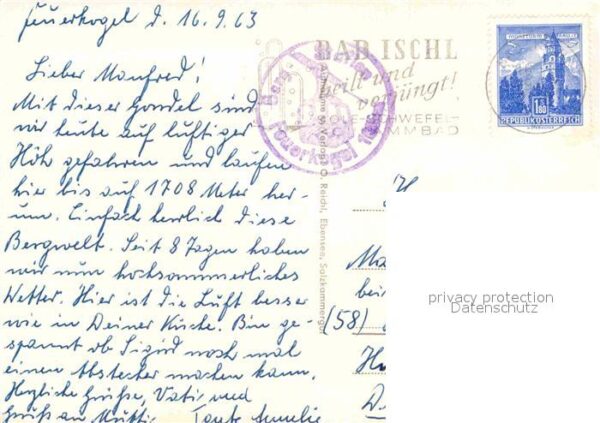 Feuerkogel d. 16.9.63
Lieber Manfred!
Mit dieser Gondel sind
wir heute auf luftiger
Höh gefahren und laufen
hier bis auf 1708 Meter her-
um. Einfach herrlich diese
Bergwelt. Seit 8 Tagen haben
wir nun hochsommerliches
Wetter. Hier ist die Luft besser
wie in Deiner Küche. Bin ge-
spannt ob Sigrid noch mal
einen Abstecher machen kann.
Herzliche Grüße, Vati und
Gruß an Mutti. Tante Amelie
BAD ISCHL
heilt und
verjüngt!
SOLE-SCHWEFEL-
MMBAD
Berg-
Feuerkogel
Verlag O. Reidl, Ebensee, Salzkammergut
1.80
REPUBLIK ÖSTERREICH
H
Ma
bei
(58)
H
D
privacy protection
Datenschutz